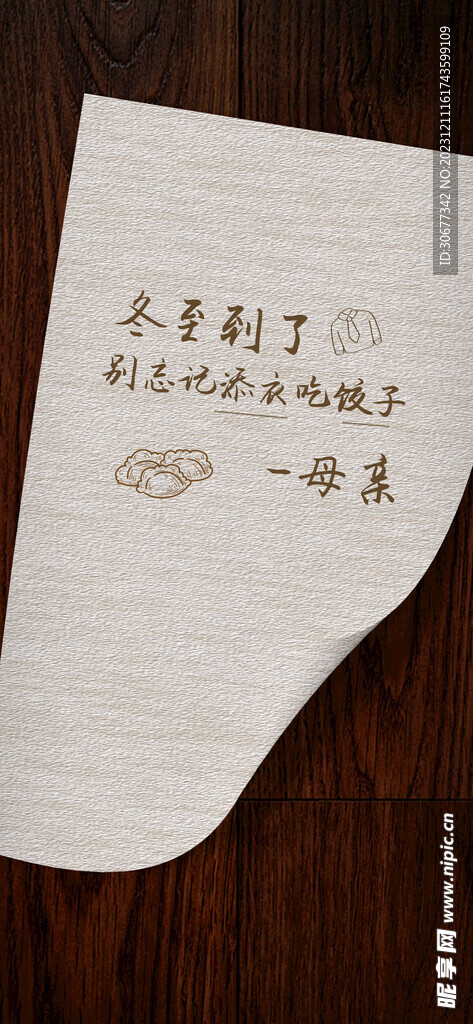 冬至到了
别忘记添衣吃饺子
—母亲
ID:30677342 NO:20231211161743599109
昵享网 www.nipic.cn